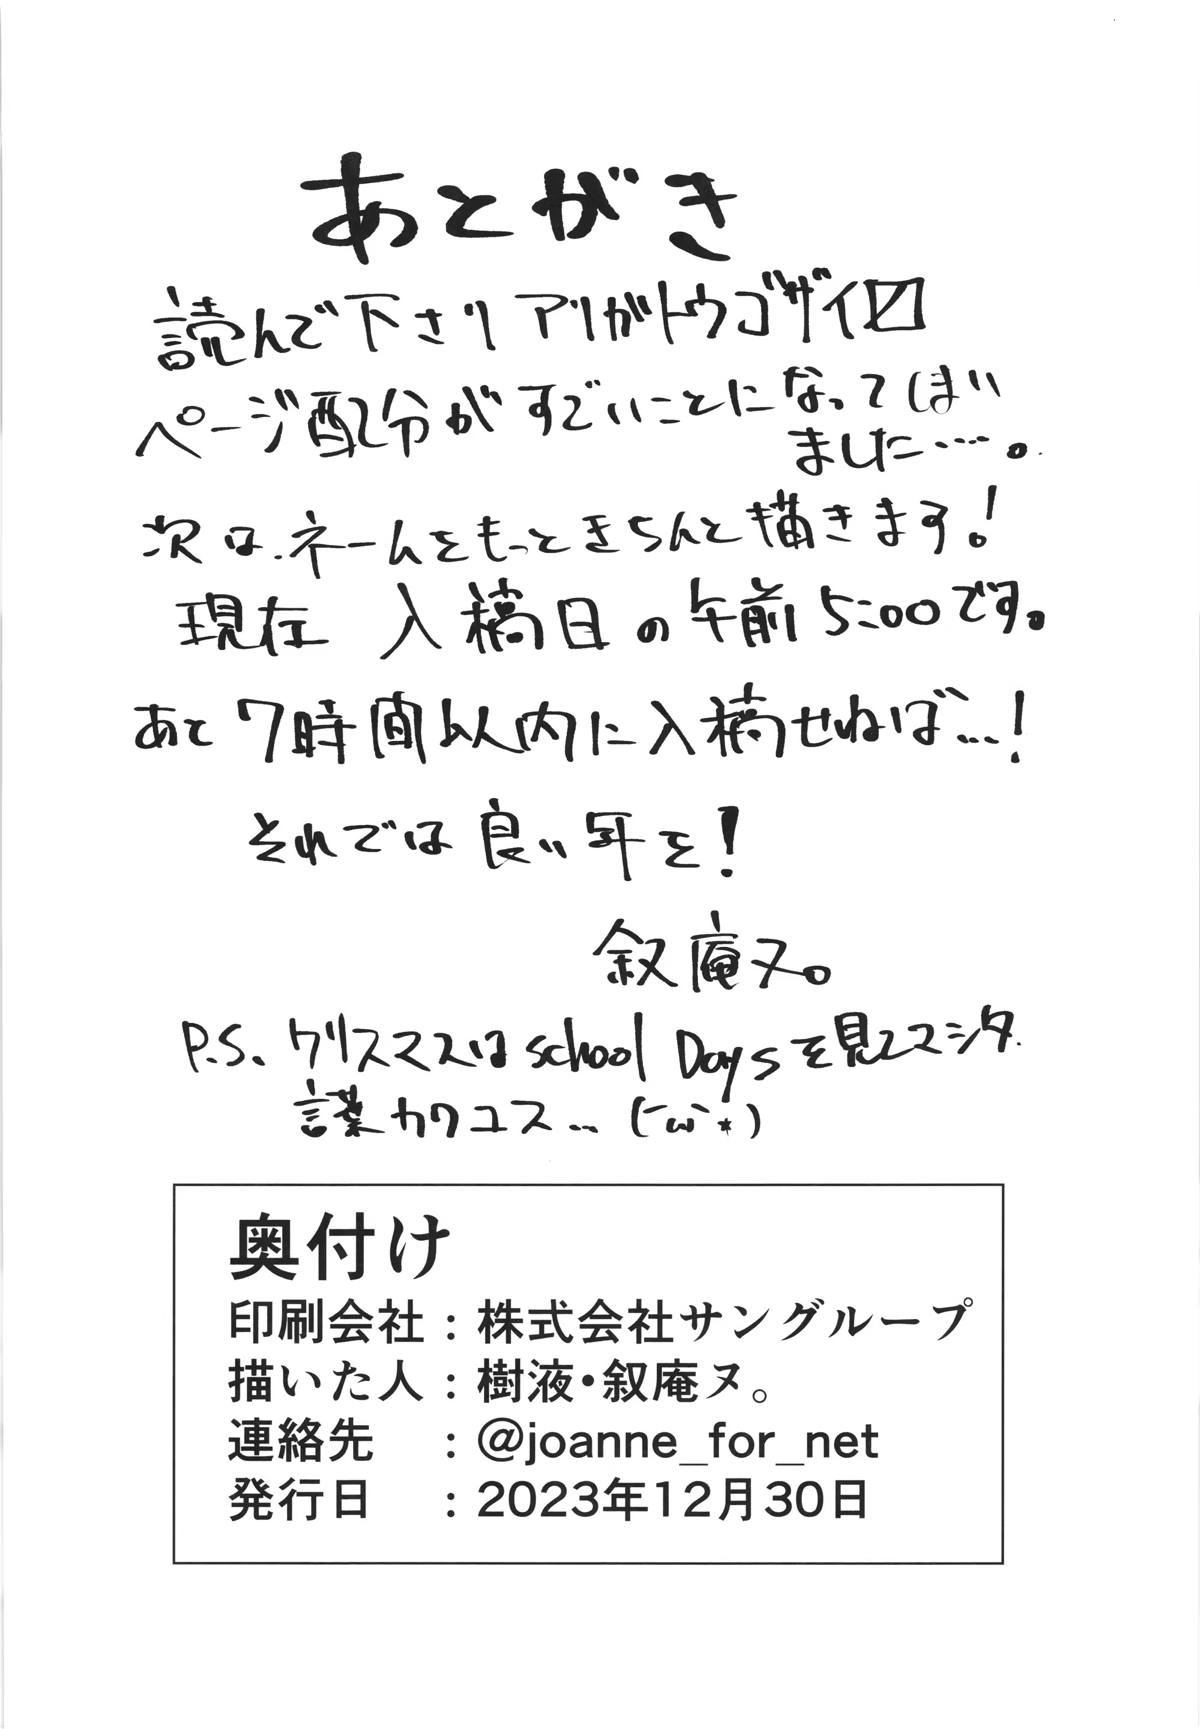 あとがき
読んで下さり アリがトウゴザイ〼
ページ配分がすごいことになってしまい
ました…。
次は、ネームをもっときちんと描きます!
現在 入稿日の午前5:00です。
あと7時間以内に入稿せねば…!
それでは良い年を!
叙庵ヌ。
P.S. クリスマスはschool Daysを見てマシタ.
言葉カワユス… (´ω`*)
奥付け
印刷会社：株式会社サングループ
描いた人：樹液・叙庵ヌ。
連絡先　：@joanne_for_net
発行日　：2023年12月30日